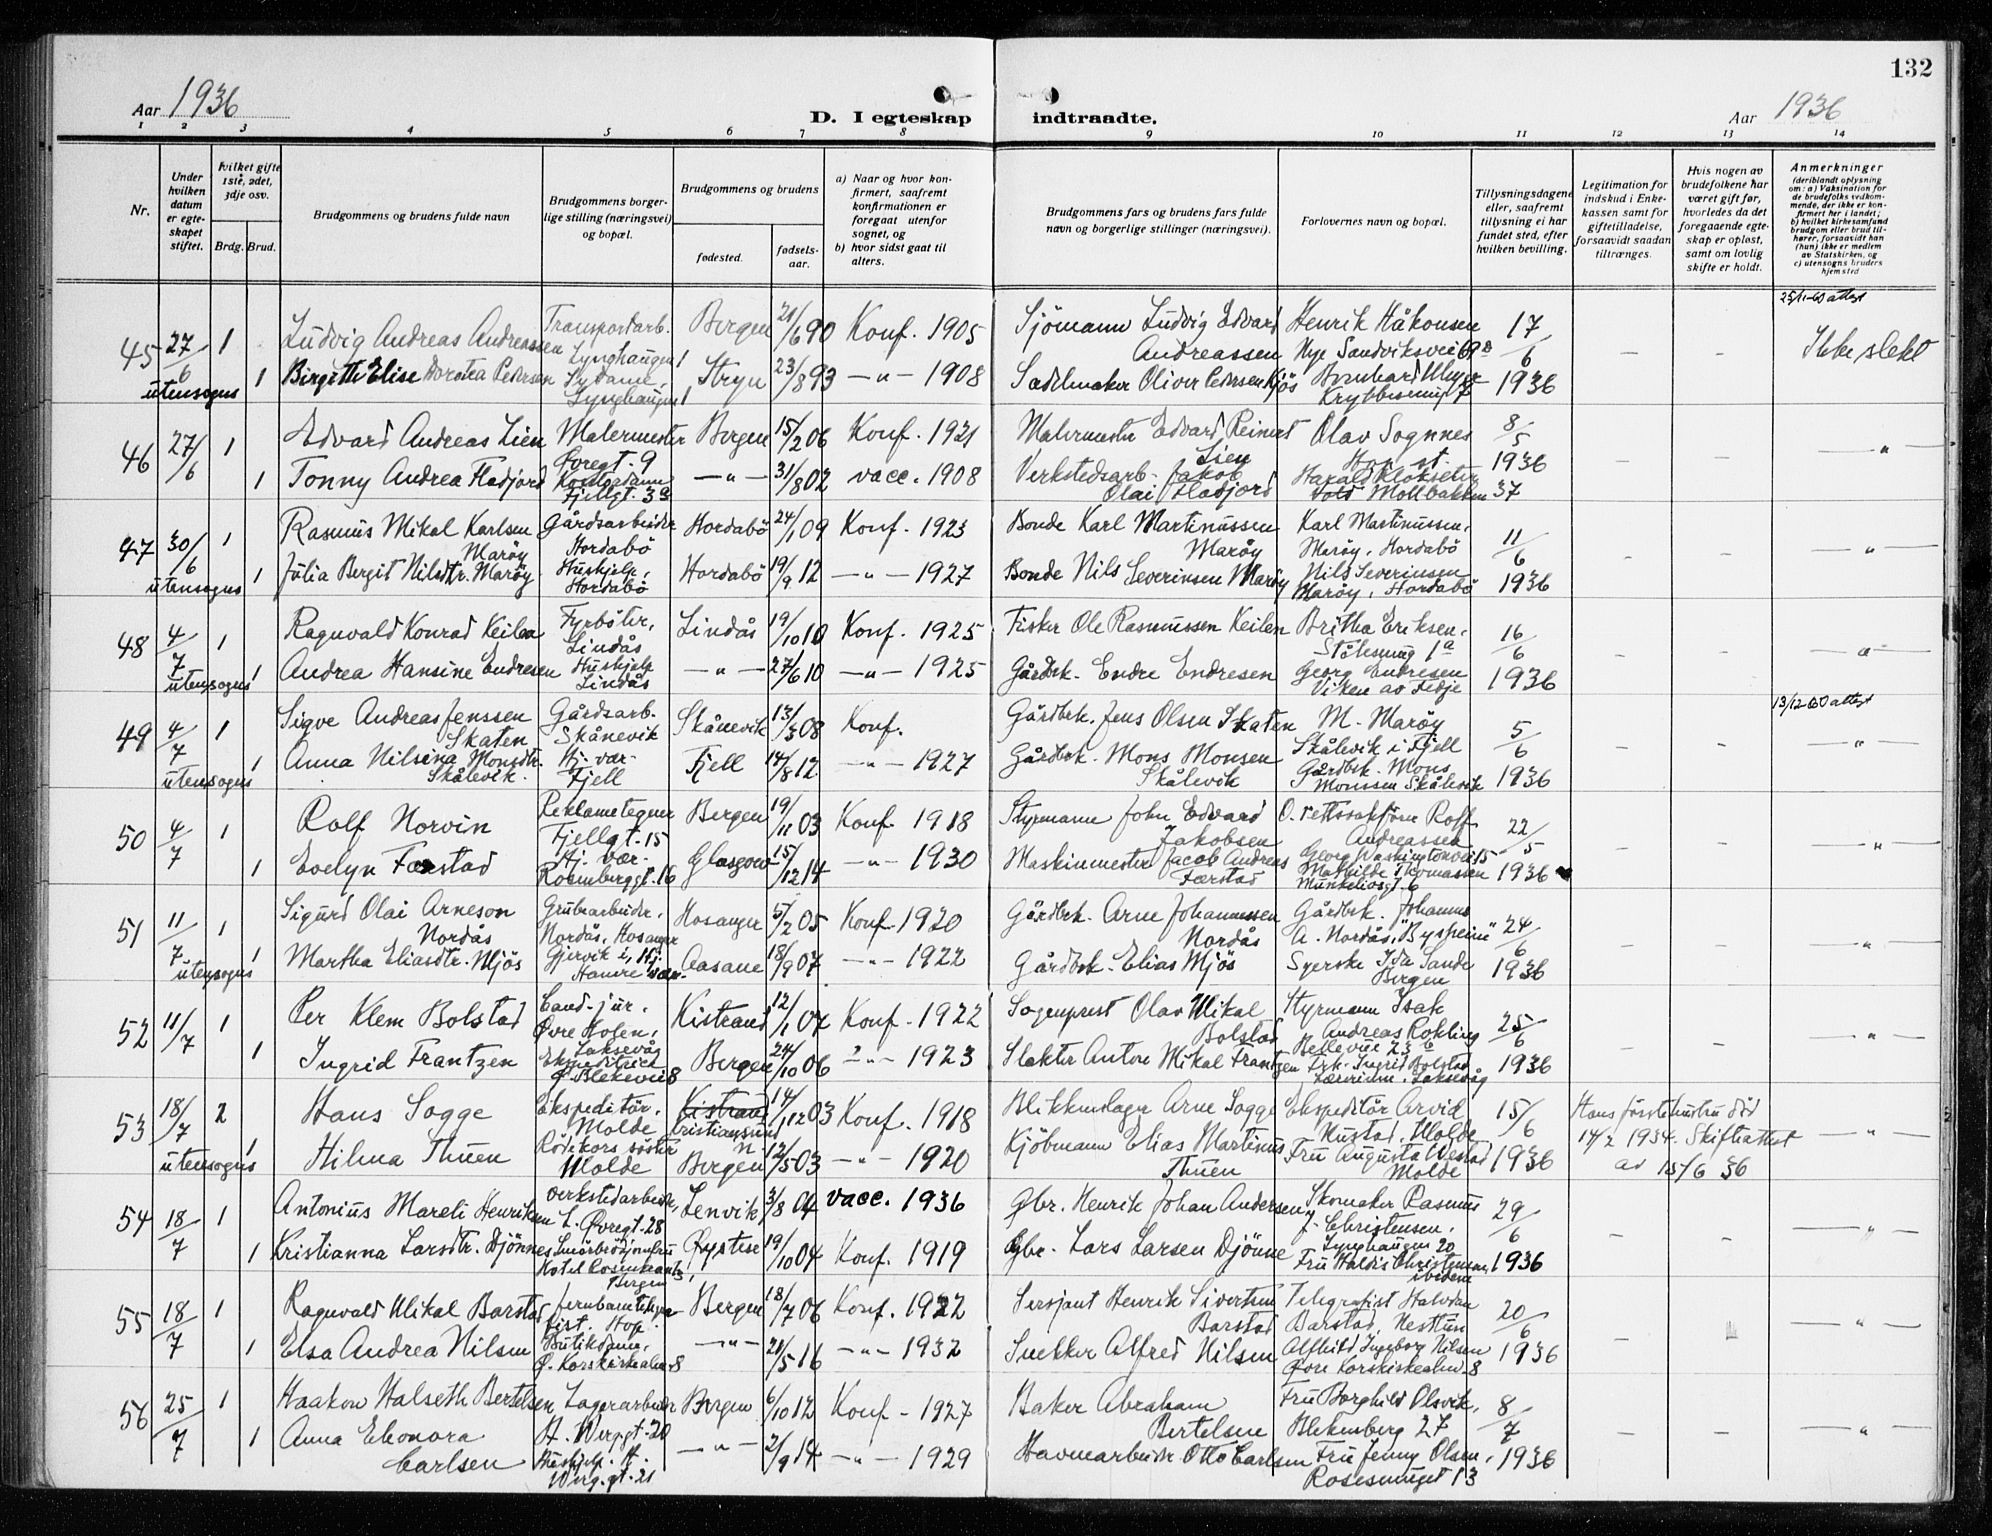 132
Aar 1936
D. I egteskap indtraadte.
Aar 1936
1 2 3 4 5 6 7 8 9 10 11 12 13 14
Nr.
Under hvilken datum er egteskapet stiftet.
hvilket gifte 1ste, 2det, 3dje osv.
Brdg. Brud.
Brudgommens og brudens fulde navn
Brudgommens borgerlige stilling (næringsvei) og bopæl.
Brudgommens og brudens
fødested.
fødselsaar.
a) Naar og hvor konfirmert, saafremt konfirmationen er foregaat utenfor sognet, og
b) hvor sidst gaat til alters.
Brudgommens fars og brudens fars fulde navn og borgerlige stillinger (næringsvei).
Forlovernes navn og bopæl.
Tillysningsdagene eller, saafremt tillysning ei har fundet sted, efter hvilken bevilling.
Legitimation for indskud i Enkekassen samt for giftetilladelse, forsaavidt saadan tiltrænges.
Hvis nogen av brudefolkene har været gift før, hvorledes da det foregaaende egteskap er opløst, samt om lovlig skifte er holdt.
Anmerkninger (deriblandt oplysning om: a) Vaksination for de brudefolks vedkommende, der ikke er konfirmert her i landet; b) hvilket kirkesamfund brudgom eller brud tilhører, forsaavidt han (hun) ikke er medlem av Statskirken, og c) utensogns bruders hjemsted
45 27/6 1 Ludvig Andreas Andreassen Transportarb. Lynghaugen 1 Bergen 21/6 90 Konf. 1905 Sjömann Ludvig Edvard Andreassen Henrik Håkonsen Nye Sandviksvei 69 B 17/6 1936 — — Ikke slekt
utensogns 1 Birgitte Elise Dorotea Pedersen Sydame, Lynghaugen 1 Stryn 23/8 93 —"— 1908 Sadelmaker Oliver Pedersen Kjös Bernhard Meyer
46 27/6 1 Edvard Andreas Lien Malermester Øvregt. 9 Bergen 15/2 06 Konf. 1921 Malermester Edvard Reinert Lien Olav Sognnes Hop st. 8/5 1936 — — "
1 Tonny Andrea Fladjord Kontordame Fjellgt. 3a —"— 31/8 02 vacc. 1908 Verkstedsarb. Jakob Olai Fladjord Harald Klokseter Møllbakken 37
47 30/6 1 Rasmus Mikal Karlsen Marøy Gårdsarbeider Hordabö Hordabö 24/1 09 Konf. 1923 Bonde Karl Martinussen Marøy Karl Martinussen, Marøy, Hordabö 11/6 1936 — — "
utensogns 1 Julia Bergit Nilsdtr. Marøy Hushjelp, Hordabö Hordabö 19/9 12 —"— 1927 Bonde Nils Severinsen Marøy Nils Severinsen Marøy, Hordabö
48 4/7 1 Ragnvald Konrad Keilen Fyrböter, Lindås Lindås 19/10 10 Konf. 1925 Fisker Ole Rasmussen Keilen Britha Eriksen, Stölesmug 1a 16/6 1936 — — "
utensogns 1 Andrea Hansine Endresen Hushjelp Lindås —"— 27/6 10 —"— 1925 Gårdbr. Endre Endresen Georg Endresen Viken av Fedje
49 4/7 1 Sigve Andreas Jenssen Skaten Gårdsarb. Skånevik Skånevik 13/3 08 Konf. Gårdbrk. Jens Olsen Skaten M. Marøy Skålevik i Fjell 5/6 1936 — — 13/12-60 attest "
utensogns 1 Anna Nilsina Monsdtr. Skålevik. Hj. vær. Fjell Fjell 14/8 12 —"— 1927 Gårdbrk. Mons Monsen Skålevik Gårdbrk. Mons Monssen Skålevik
50 4/7 1 Rolf Norvin Reklametegner Fjellgt. 15 Bergen 19/11 03 Konf. 1918 Styrmann John Edvard Jakobsen O.rettssakförer Rolf Andreassen Georg Washingtonvei 15 22/5 1936 — — "
1 Evelyn Færstad Hj. vær. Rosenberggt. 16 Glasgow 15/12 14 —"— 1930 Maskinmester Jacob Andreas Færstad Mathilde Thomassen Munkeliusgt. 6
51 11/7 1 Sigurd Olai Arneson Nordås Grubearbeider, Nordås, Hosanger Hosanger 5/2 05 Konf. 1920 Gårdbrk. Arne Johannessen Nordås Gårdbrk. Johannes A. Nordås, "Bysheim" 24/6 1936 — — "
utensogns 1 Martha Eliasdtr. Mjös Gjervik i Hamre Hj. vær. Aasane 18/9 07 —"— 1922 Gårdbrk. Elias Mjös Syerske Ida Sande Bergen
52 11/7 1 Per Klem Bolstad Cand. jur. Øvre Holen, Laksevåg Kistrand 12/1 07 Konf. 1922 Sogneprest Olav Mikal Bolstad Styrmann Isak Andreas Rokling Bellevue 23 b 25/6 1936 — — "
1 Ingrid Frantzen Ekspeditrice Ø. Blekevei 8 Bergen 24/10 06 —"— 1923 Slakter Anton Mikal Frantzen Frk. Ingrid Bolstad Lærerinne, Laksevåg
53 18/7 2 Hans Sogge Ekspeditör, Molde Kistrand Kristiansund N 14/12 03 Konf. 1918 Blikkenslager Arne Sogge Ekspeditör Arvid Hustad, Molde 15/6 1936 Hans förste hustru död 14/2 1934. Skifteattest av 15/6 36 "
utensogns 1 Hilma Thuen Rödekors söster Molde Bergen 12/5 03 —"— 1920 Kjöbmann Elias Martinus Thuen Fru Augusta Westad Molde
54 18/7 1 Antonius Mareli Henriksen Verkstedarbeider, L. Øvregt. 28 Lenvik 3/8 04 vacc. 1936 Gbr. Henrik Johan Andersen Skomaker Rasmus J. Christensen, Lynghaugen 20 29/6 1936 — — "
1 Kristianna Larsdtr. Djönne Smörbrödjomfru Hotel Rosenkrantz, Bergen Øystese 19/10 04 Konf. 1919 Gbr. Lars Larsen Djönne Fru Haldis Christensen, ibidem
55 18/7 1 Ragnvald Mikal Barstad Jernbanetelegrafist. Hop. Bergen 18/7 06 Konf. 1922 Sersjant Henrik Sivertsen Barstad Telegrafist Halvdan Barstad, Nesttun 20/6 1936 — — "
1 Elsa Andrea Nilsen Butikdame, Ø. Korskirkealm. 8 —"— 21/5 16 —"— 1932 Snekker Alfred Nilsen Alfhild Ingeborg Nilsen Øvre Korskirkealm. 8
56 25/7 1 Haakon Halseth Bertelsen Lagerarbeider H. Wergt. 20 Bergen 6/10 12 Konf. 1927 Baker Abraham Bertelsen Fru Borghild Olsvik, Blekenberg 27 8/7 1936 — — "
1 Anna Eleonora Carlsen Hushjelp. H. Werg.gt. 21 —"— 2/9 14 —"— 1929 Havnearbeider Otto Carlsen Fru Jenny Olsen, Rosesmuget 13